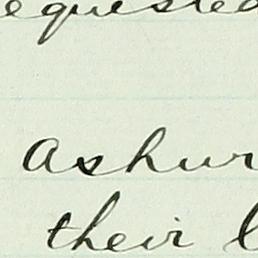 equested
Ashur
their